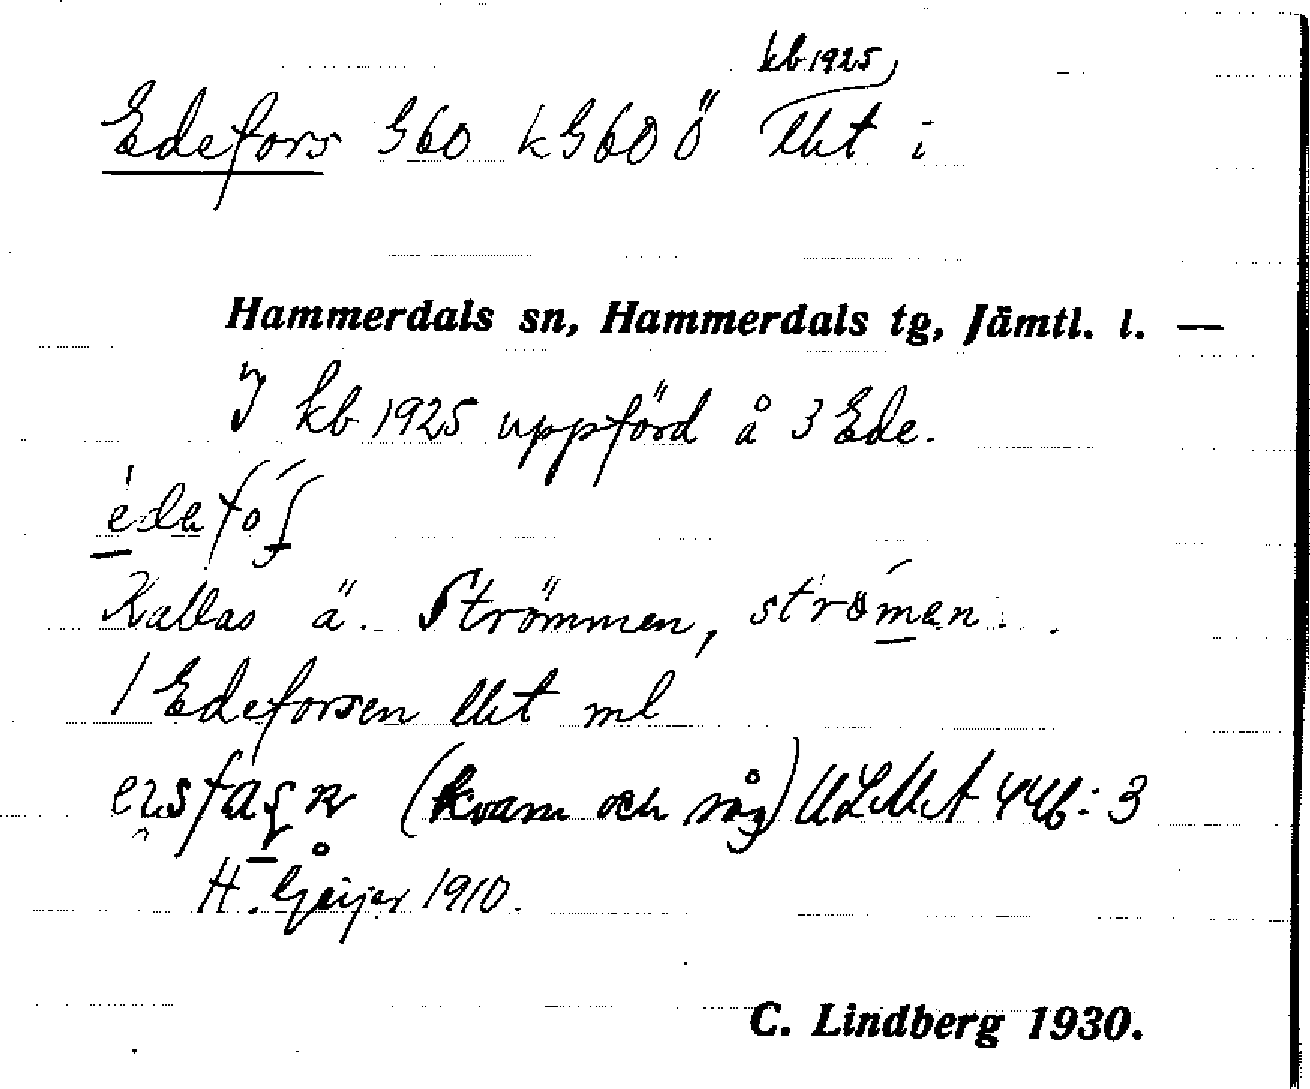 kb 1925
Edefors G60 kG60 Ö llet i
Hammerdals sn, Hammerdals tg, Jämtl. l. —
I kb 1925 uppförd å 3 Ede.
Kallas ä. Strömmen, strömen.
/ Edeforsen llet ml
(kvarn och såg) ULMA 446:3
H. Geijer 1910.
C. Lindberg 1930.